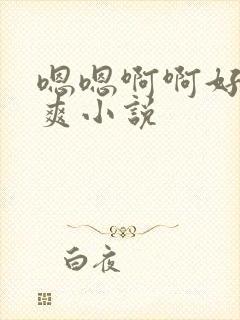 嗯嗯啊啊好
爽小说
白夜